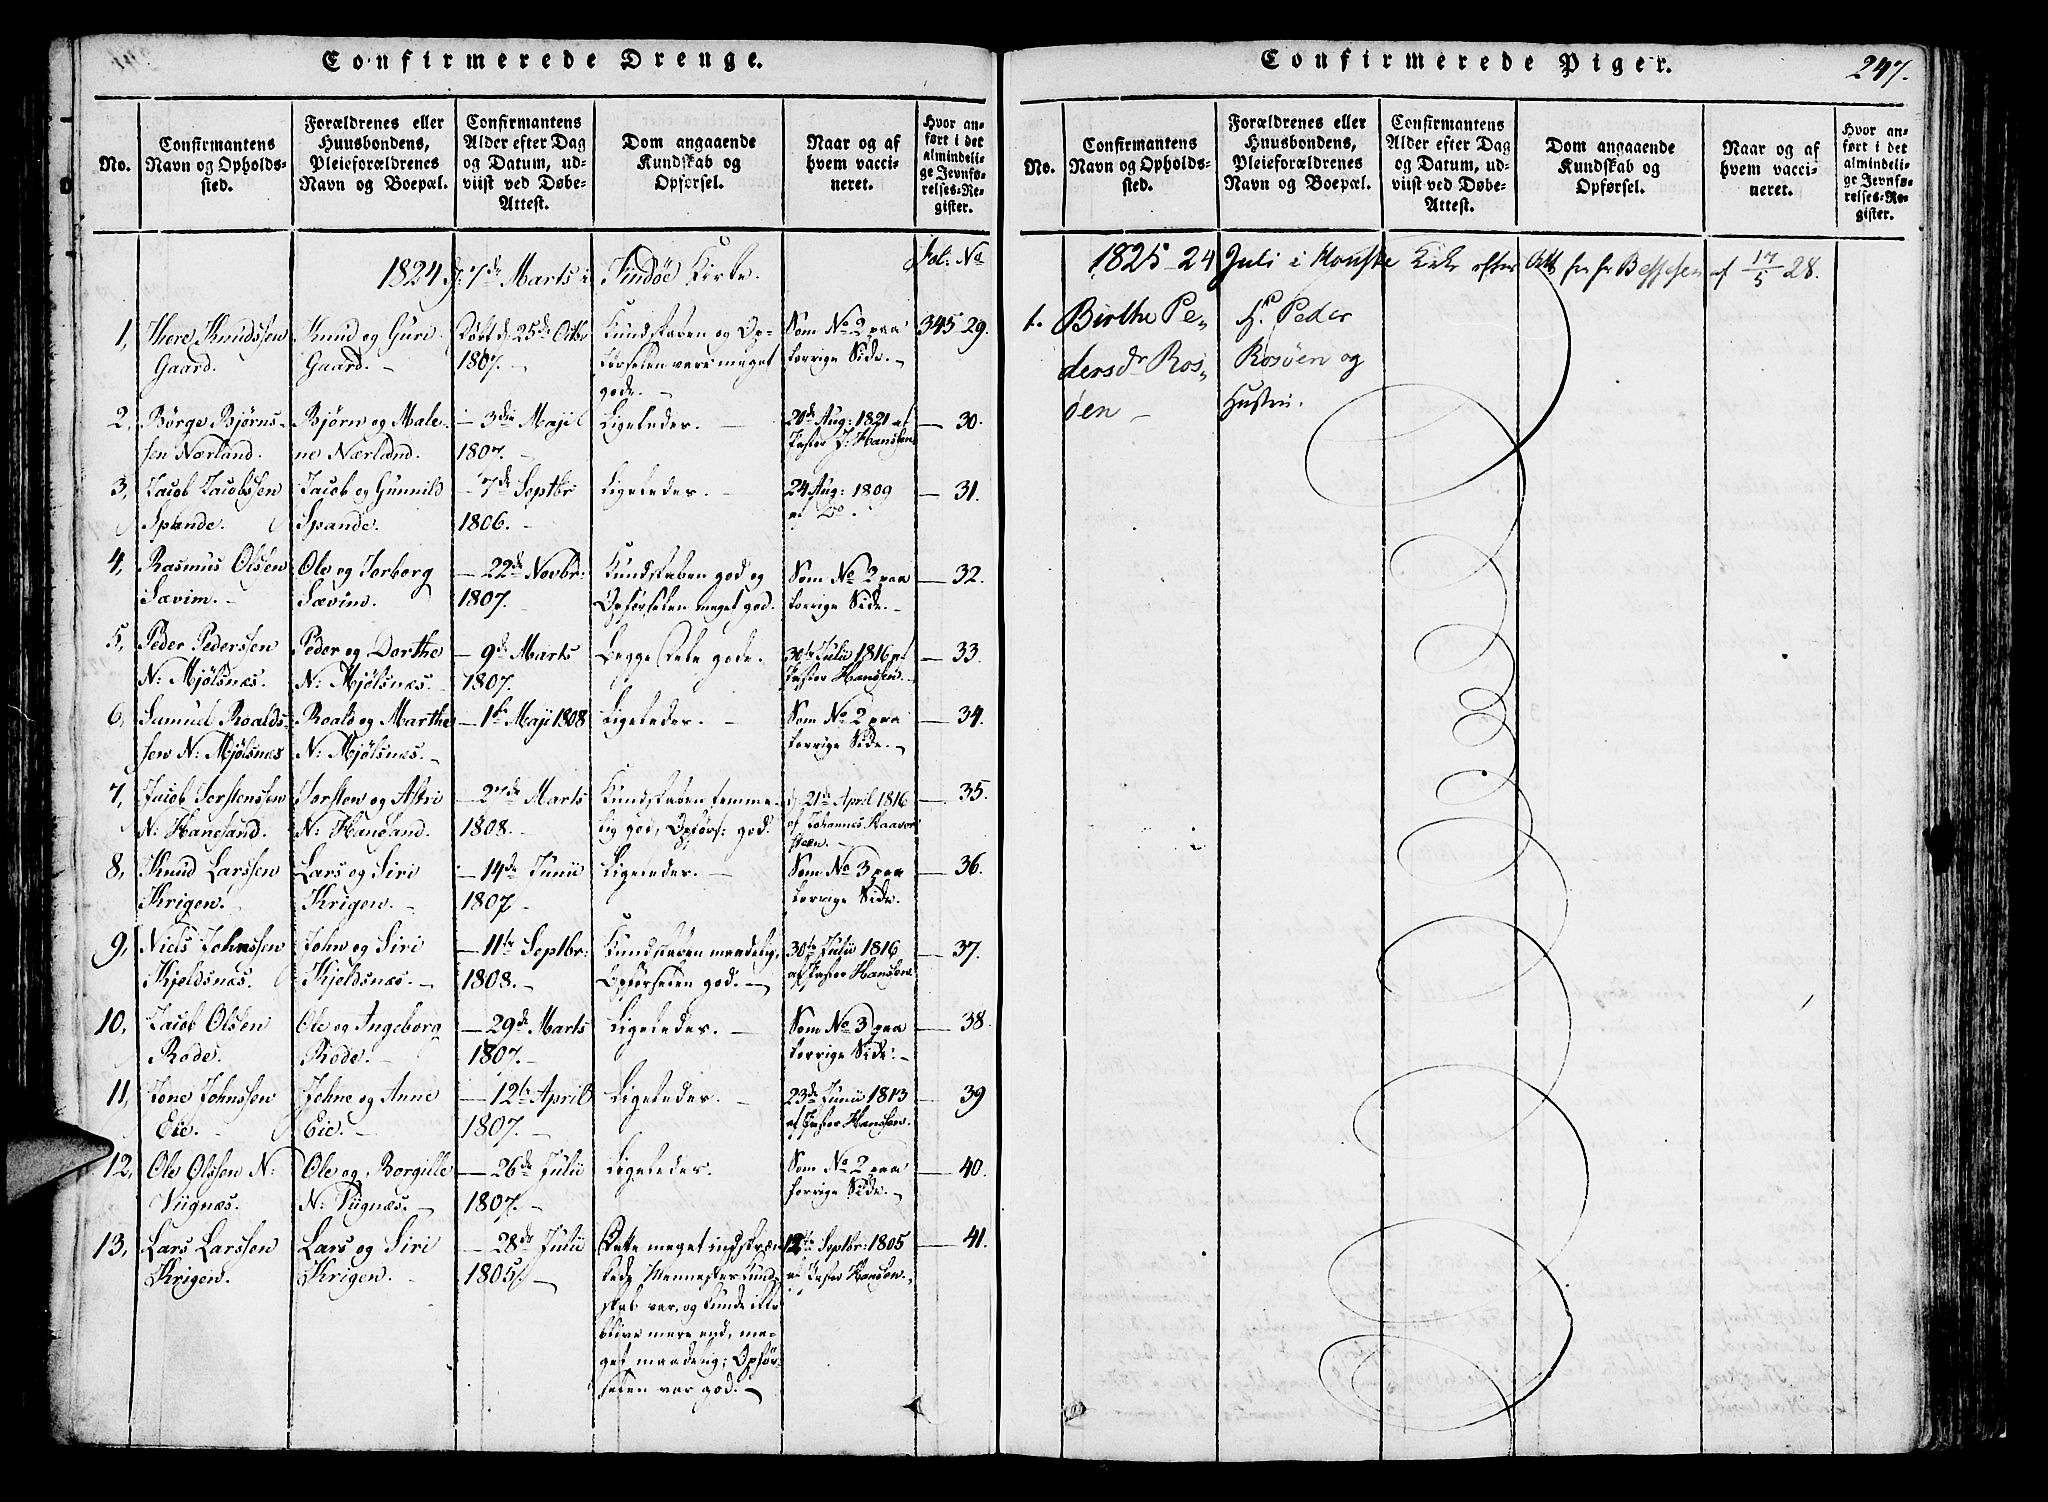 Confirmerede Drenge.
No.
Confirmantens
Navn og Opholds-
sted.
Forældrenes eller
Huusbondens,
Pleieforældrenes
Navn og Boepæl.
Confirmantens
Alder efter Dag
og Datum, ud-
viist ved Døbe-
Attest.
Dom angaaende
Kundskab og
Opførsel.
Naar og af
hvem vacci-
neret.
Hvor an-
ført i det
almindeli-
ge Jevnfø-
relses-Re-
gister.
1824 d: 7de Marts i Findöe Kirke.
Fol: No
1, Thore Knudssen
Gaard.
Knud og Guri
Gaard.
Døbt d: 25de Octbr
1807.
Kundskaben og Op-
førselen vare meget
gode.
Som No 2 paa
forrige Side.
345 29.
2, Börge Bjørns-
sen Nærland.
Bjørn og Male-
ne Nærland.
— 3die Maji
1807.
Ligeledes.
20de Aug: 1821 af
Pastor J: Hanssen
— 30.
3, Jacob Jacobssen
Spande.
Jacob og Gunnild
Spande.
— 7de Septbr
1806.
Ligeledes.
24 Aug: 1809
af Do.
— 31.
4, Rasmus Olssen
Sævim.
Ole og Torborg
Sævim.
— 22de Novbr:
1807.
Kundskaben god og
Opførselen meget god.
Som No 2 paa
forrige Side.
— 32.
5, Peder Pederssen
N: Mjölsnæs.
Peder og Dorthe
N: Mjölsnæs.
— 9de Marts
1807.
Begge Dele gode.
30te Julii 1816 af
Pastor Hanssen.
— 33.
6, Samuel Roalds-
sen N: Mjölsnæs
Roald og Marthe
N: Mjölsnæs.
— 1ste Maji 1808
Ligeledes.
Som No 2 paa
forrige Side.
— 34.
7, Jacob Torstenssen
N: Hanesand.
Torsten og Astri
N: Hanesand.
— 27de Marts
1808.
Kundskaben temme-
lig god, Opførs: god.
d: 21de April 1816
af Johannes Haavor
steen.
— 35.
8, Knud Larssen
Krigen.
Lars og Siri
Krigen.
— 14de Junii
1807
Ligeledes.
Som No 3 paa
forrige Side.
— 36.
9, Niels Johnssen
Kjeldsnæs.
John og Siri
Kjeldsnæs.
— 11te Septbr:
1808.
Kundskaben maadelig,
Opførselen god.
30te Julii 1816
af Pastor Hanssen
— 37.
10, Jacob Olssen
Rode.
Ole og Ingeborg
Rode.
— 29de Marts
1807.
Ligeledes.
Som No 3 paa
forrige Side.
— 38.
11, Tone Johnssen
Eie.
Johne og Anne
Eie.
— 12te April
1807.
Ligeledes.
23de Junii 1813
af Pastor Hanssen.
— 39
12, Ole Olssen N:
Viignæs.
Ole og Borgille
N: Viignæs.
— 26de Julii
1807.
Ligeledes.
Som No 2 paa
forrige Side.
— 40.
13, Lars Larssen
Krigen.
Lars og Siri
Krigen.
— 28de Julii
1805.
Dette meget indskræn-
kede Menneskes Kund-
skab var, og kunde ikke
blive mere end, me-
get maadelig; Opfør-
selen var god.
12te Septbr: 1805
af Pastor Hanssen.
— 41.
Confirmerede Piger.
247.
No.
Confirmantens
Navn og Opholds-
sted.
Forældrenes eller
Huusbondens,
Pleieforældrenes
Navn og Boepæl.
Confirmantens
Alder efter Dag
og Datum, ud-
viist ved Døbe-
Attest.
Dom angaaende
Kundskab og
Opførsel.
Naar og af
hvem vacci-
neret.
Hvor an-
ført i det
almindeli-
ge Jevnfø-
relses-Re-
gister.
1825 - 24 Juli i Kirke efter Att fra hr af 17/5 28.
1. Birthe Pe-
dersdr Ros-
öen
Peder
Rosöen og
Hustru.